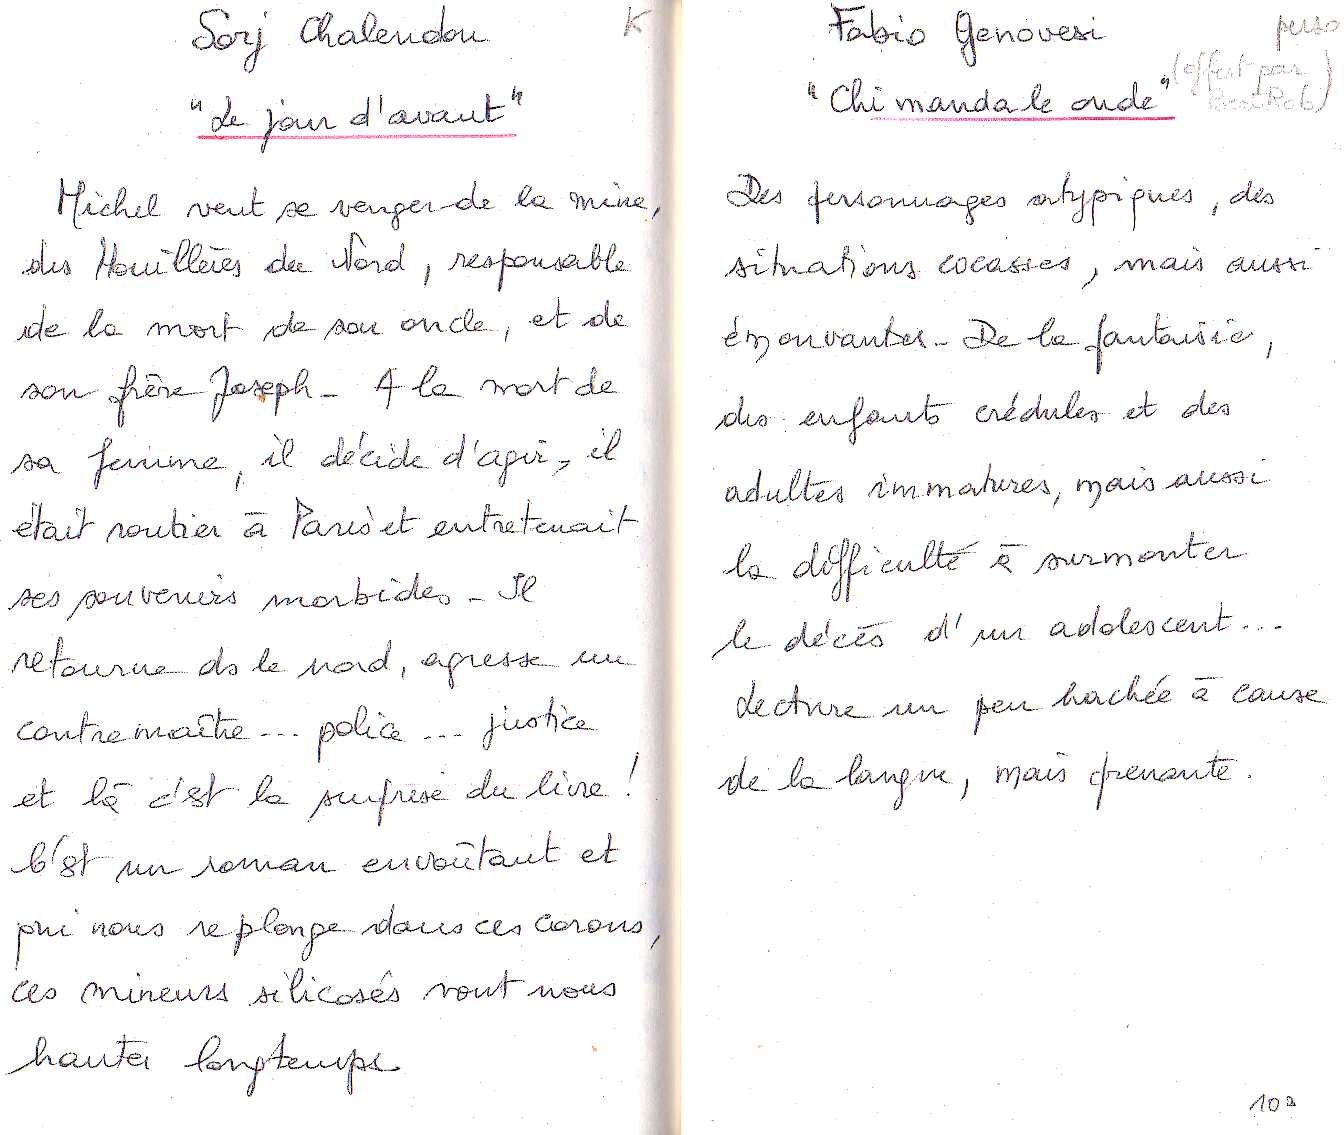 Sorj Chalendon
K
"Le jour d'avant"
Michel veut se venger de la mine,
des Houillères du Nord, responsable
de la mort de son oncle, et de
son frère Joseph - A la mort de
sa femme, il décide d'agir, il
était routier à Paris et entretenait
ses souvenirs morbides - Il
retourne ds le nord, agresse un
contremaître ... police ... justice
et là c'est la surprise du livre !
C'est un roman envoûtant et
qui nous replonge dans ces corons,
ces mineurs silicosés vont nous
hanter longtemps.
Fabio Genovesi
perso
(offert par
"Chi manda le onde"
Des personnages atypiques, des
situations cocasses, mais aussi
émouvantes - De la fantaisie,
des enfants crédules et des
adultes immatures, mais aussi
la difficulté à surmonter
le décès d'un adolescent ...
Lecture un peu hachée à cause
de la langue, mais prenante.